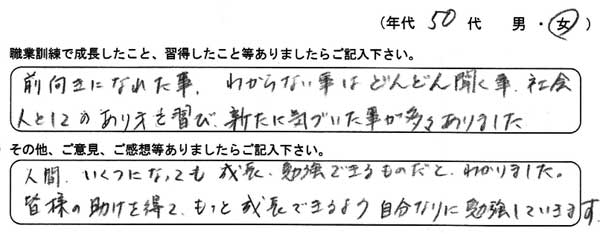 (年代 50代 男・女)
職業訓練で成長したこと、習得したこと等ありましたらご記入下さい。
前向きになれた事、わからない事はどんどん聞く事、社会
人としてのあり方を習び、新たに気づいた事が多々ありました
その他、ご意見、ご感想等ありましたらご記入下さい。
人間、いくつになっても成長、勉強できるものだと、わかりました。
皆様の助けを得て、もっと成長できるよう自分なりに勉強していきます。